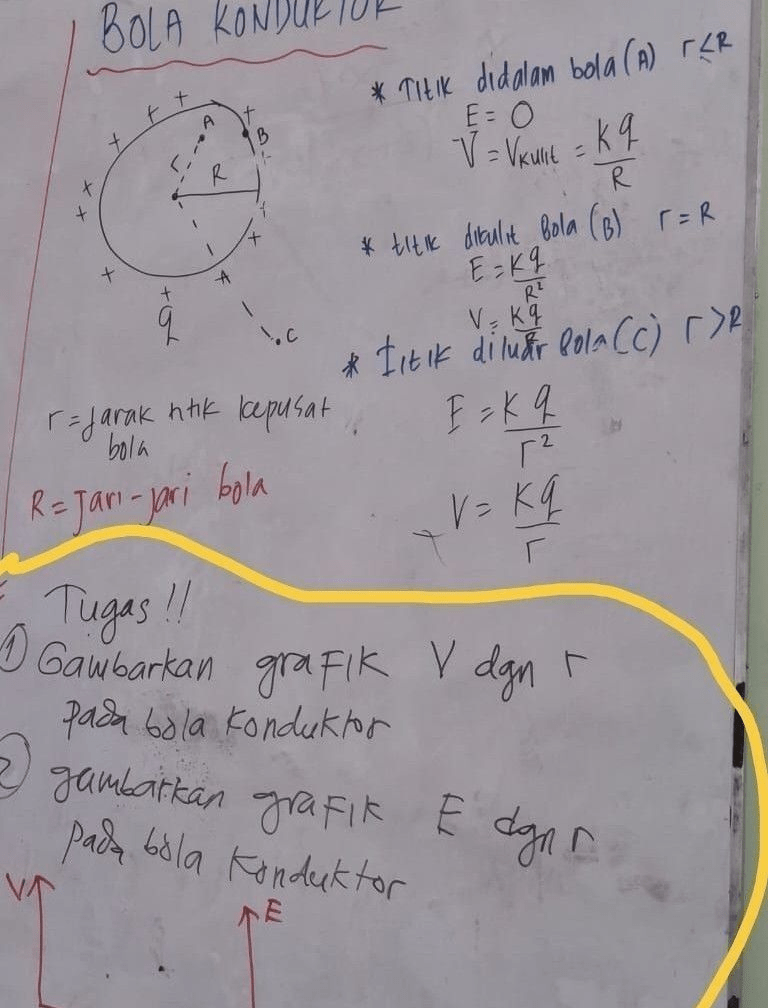 BOLA KONDUKTOR
* Titik didalam bola (A) r<R
E = 0
V = Vkulit = Kq/R
* titik dikulit Bola (B) r = R
E = Kq/R²
V = Kq/R
* Titik diluar Bola (C) r>R
E = Kq/r²
V = Kq/r
A
B
r
R
A
C
q
r = jarak titik kepusat
bola
R = Jari-jari bola
Tugas !!
① Gambarkan grafik V dgn r
pada bola konduktor
② gambarkan grafik E dgn r
pada bola konduktor
V
E